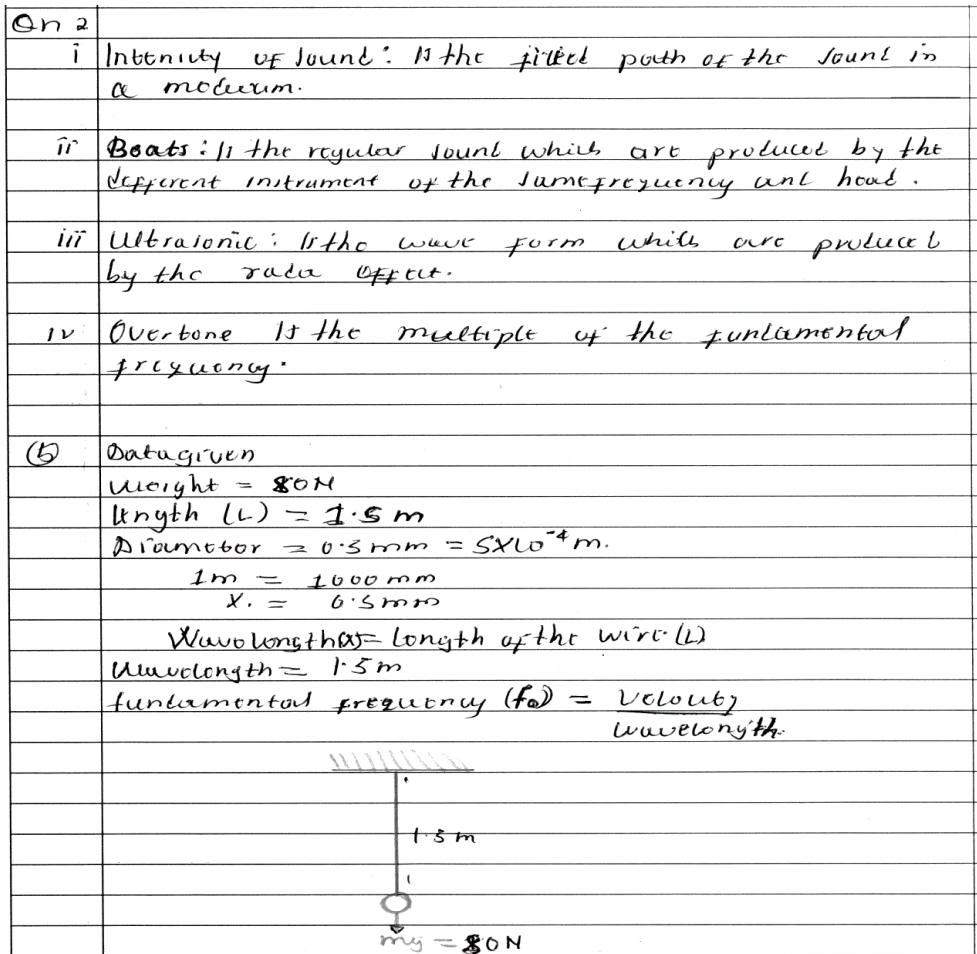 Qn 2
i Intensity of sound: Is the path of the sound in
a
ii Beats: Is the regular sound which are produced by the
different instrument of the same frequency and
iii Ultrasonic: Is the wave form which are produced
by the
iv Overtone Is the multiple of the fundamental
frequency.
(b) Data given
weight = 80N
length (L) = 1.5 m
Diameter = 0.5 mm = 5X10⁻⁴ m.
1m = 1000 mm
X. = 0.5mm
Wavelength = Length of the wire (L)
Wavelength = 1.5m
fundamental frequency (fo) = Velocity
wavelength.
1.5 m
mg = 80N